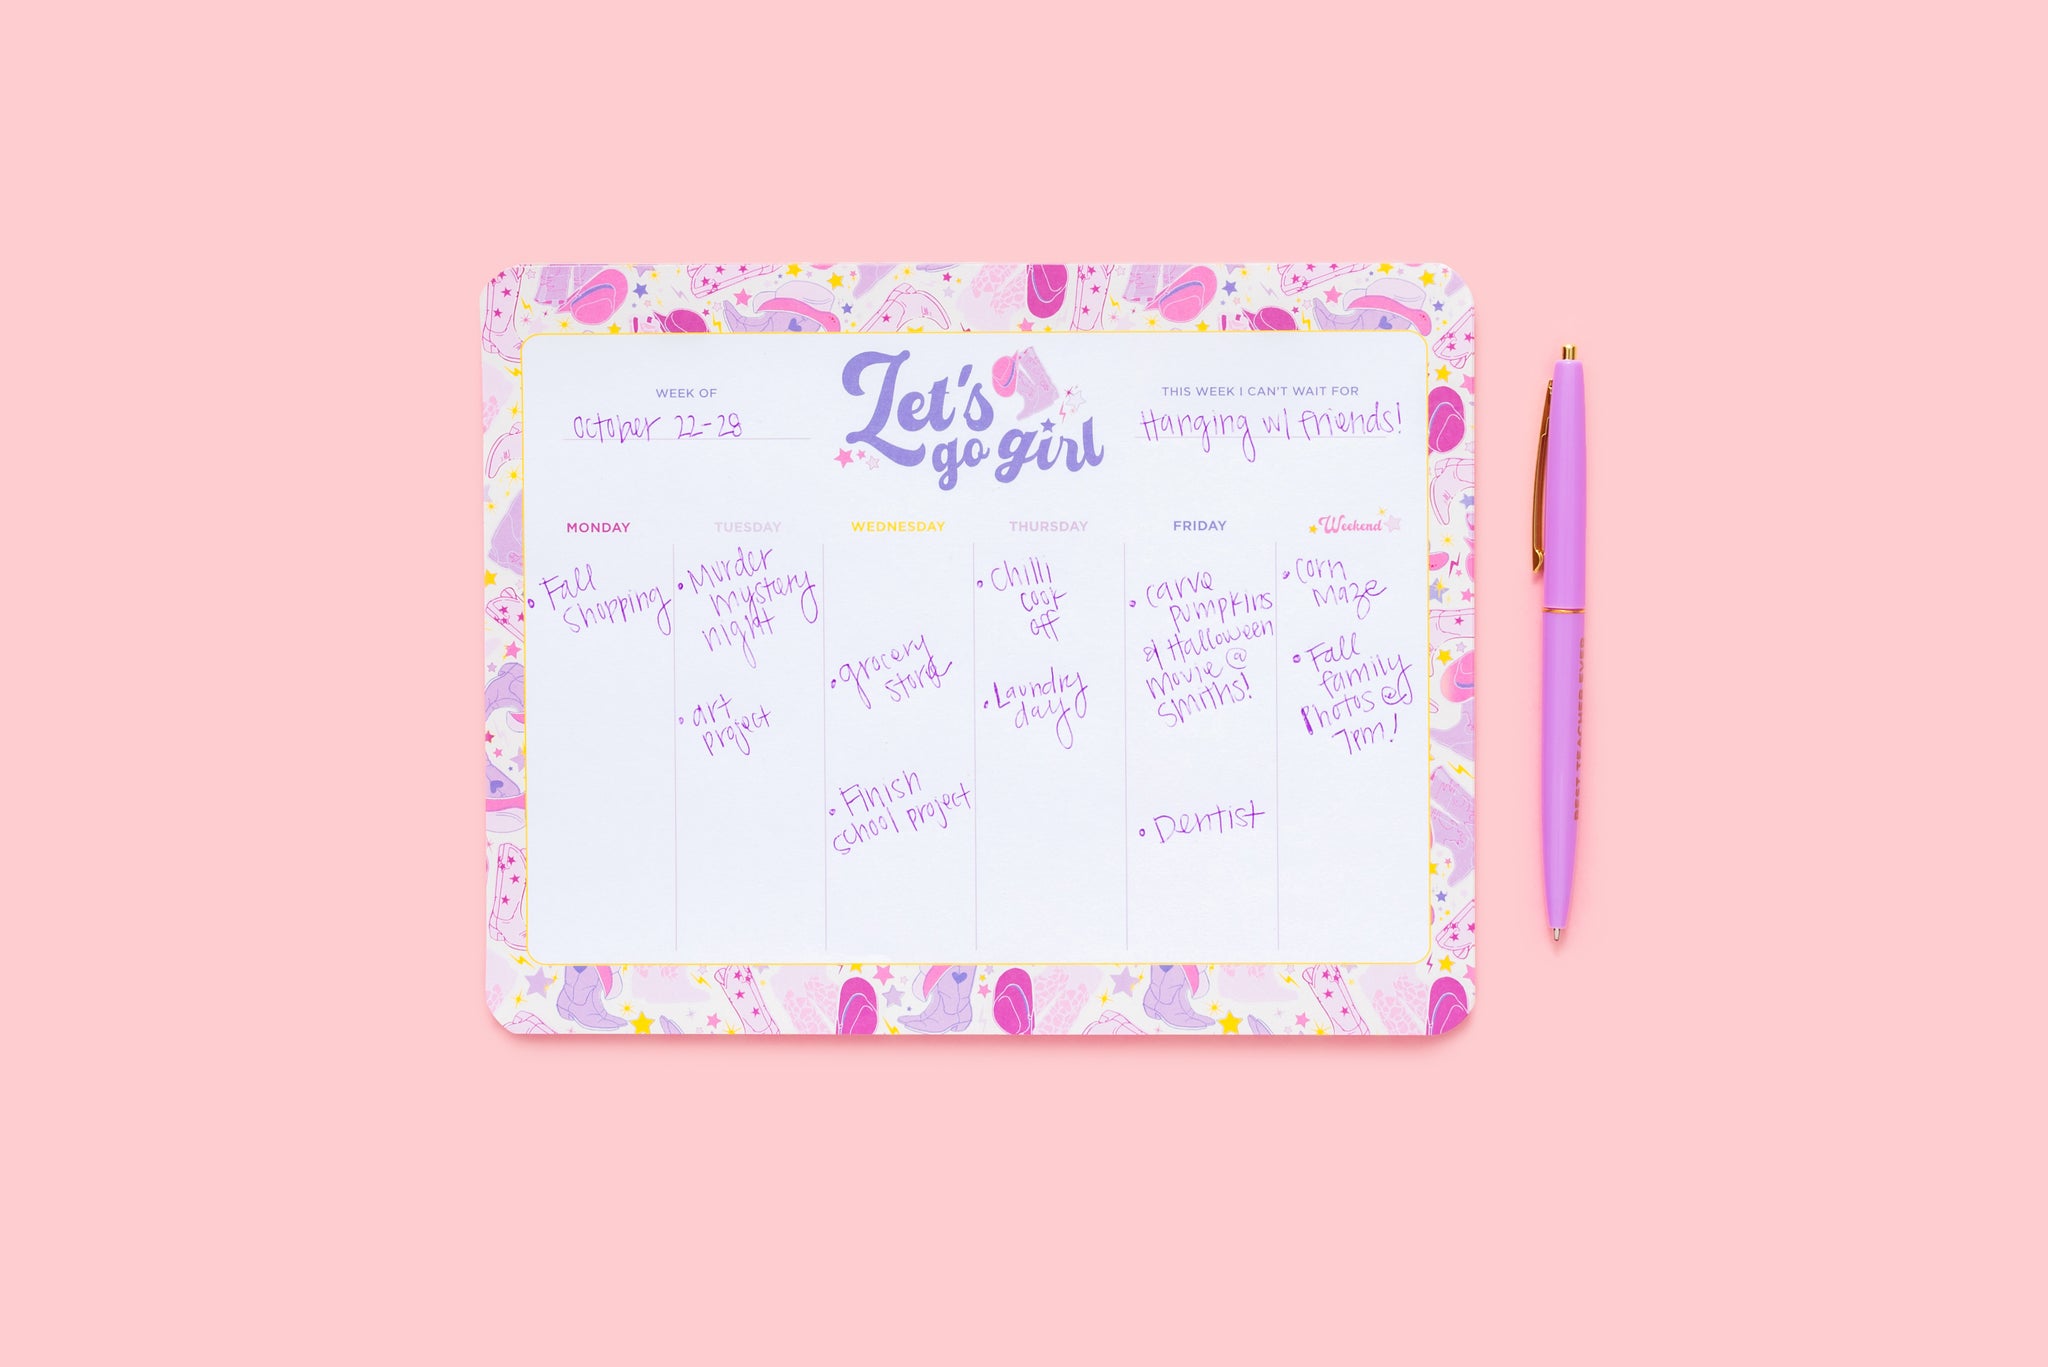 WEEK OF
October 22-28
Let's
go girl
THIS WEEK I CAN'T WAIT FOR
Hanging w/ friends!
MONDAY
• Fall
shopping
TUESDAY
• Murder
mystery
night
• art
project
WEDNESDAY
• grocery
store
• Finish
school project
THURSDAY
• Chilli
cook
off
• Laundry
day
FRIDAY
• carve
pumpkins
& Halloween
Movie @
Smiths!
• Dentist
Weekend
• Corn
Maze
• Fall
family
Photos @
7pm!
BEST TEACHER EVER